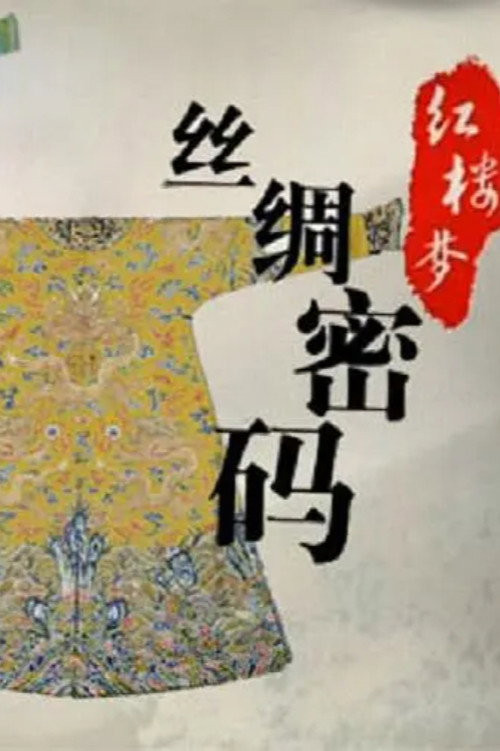 红楼梦
丝绸密码